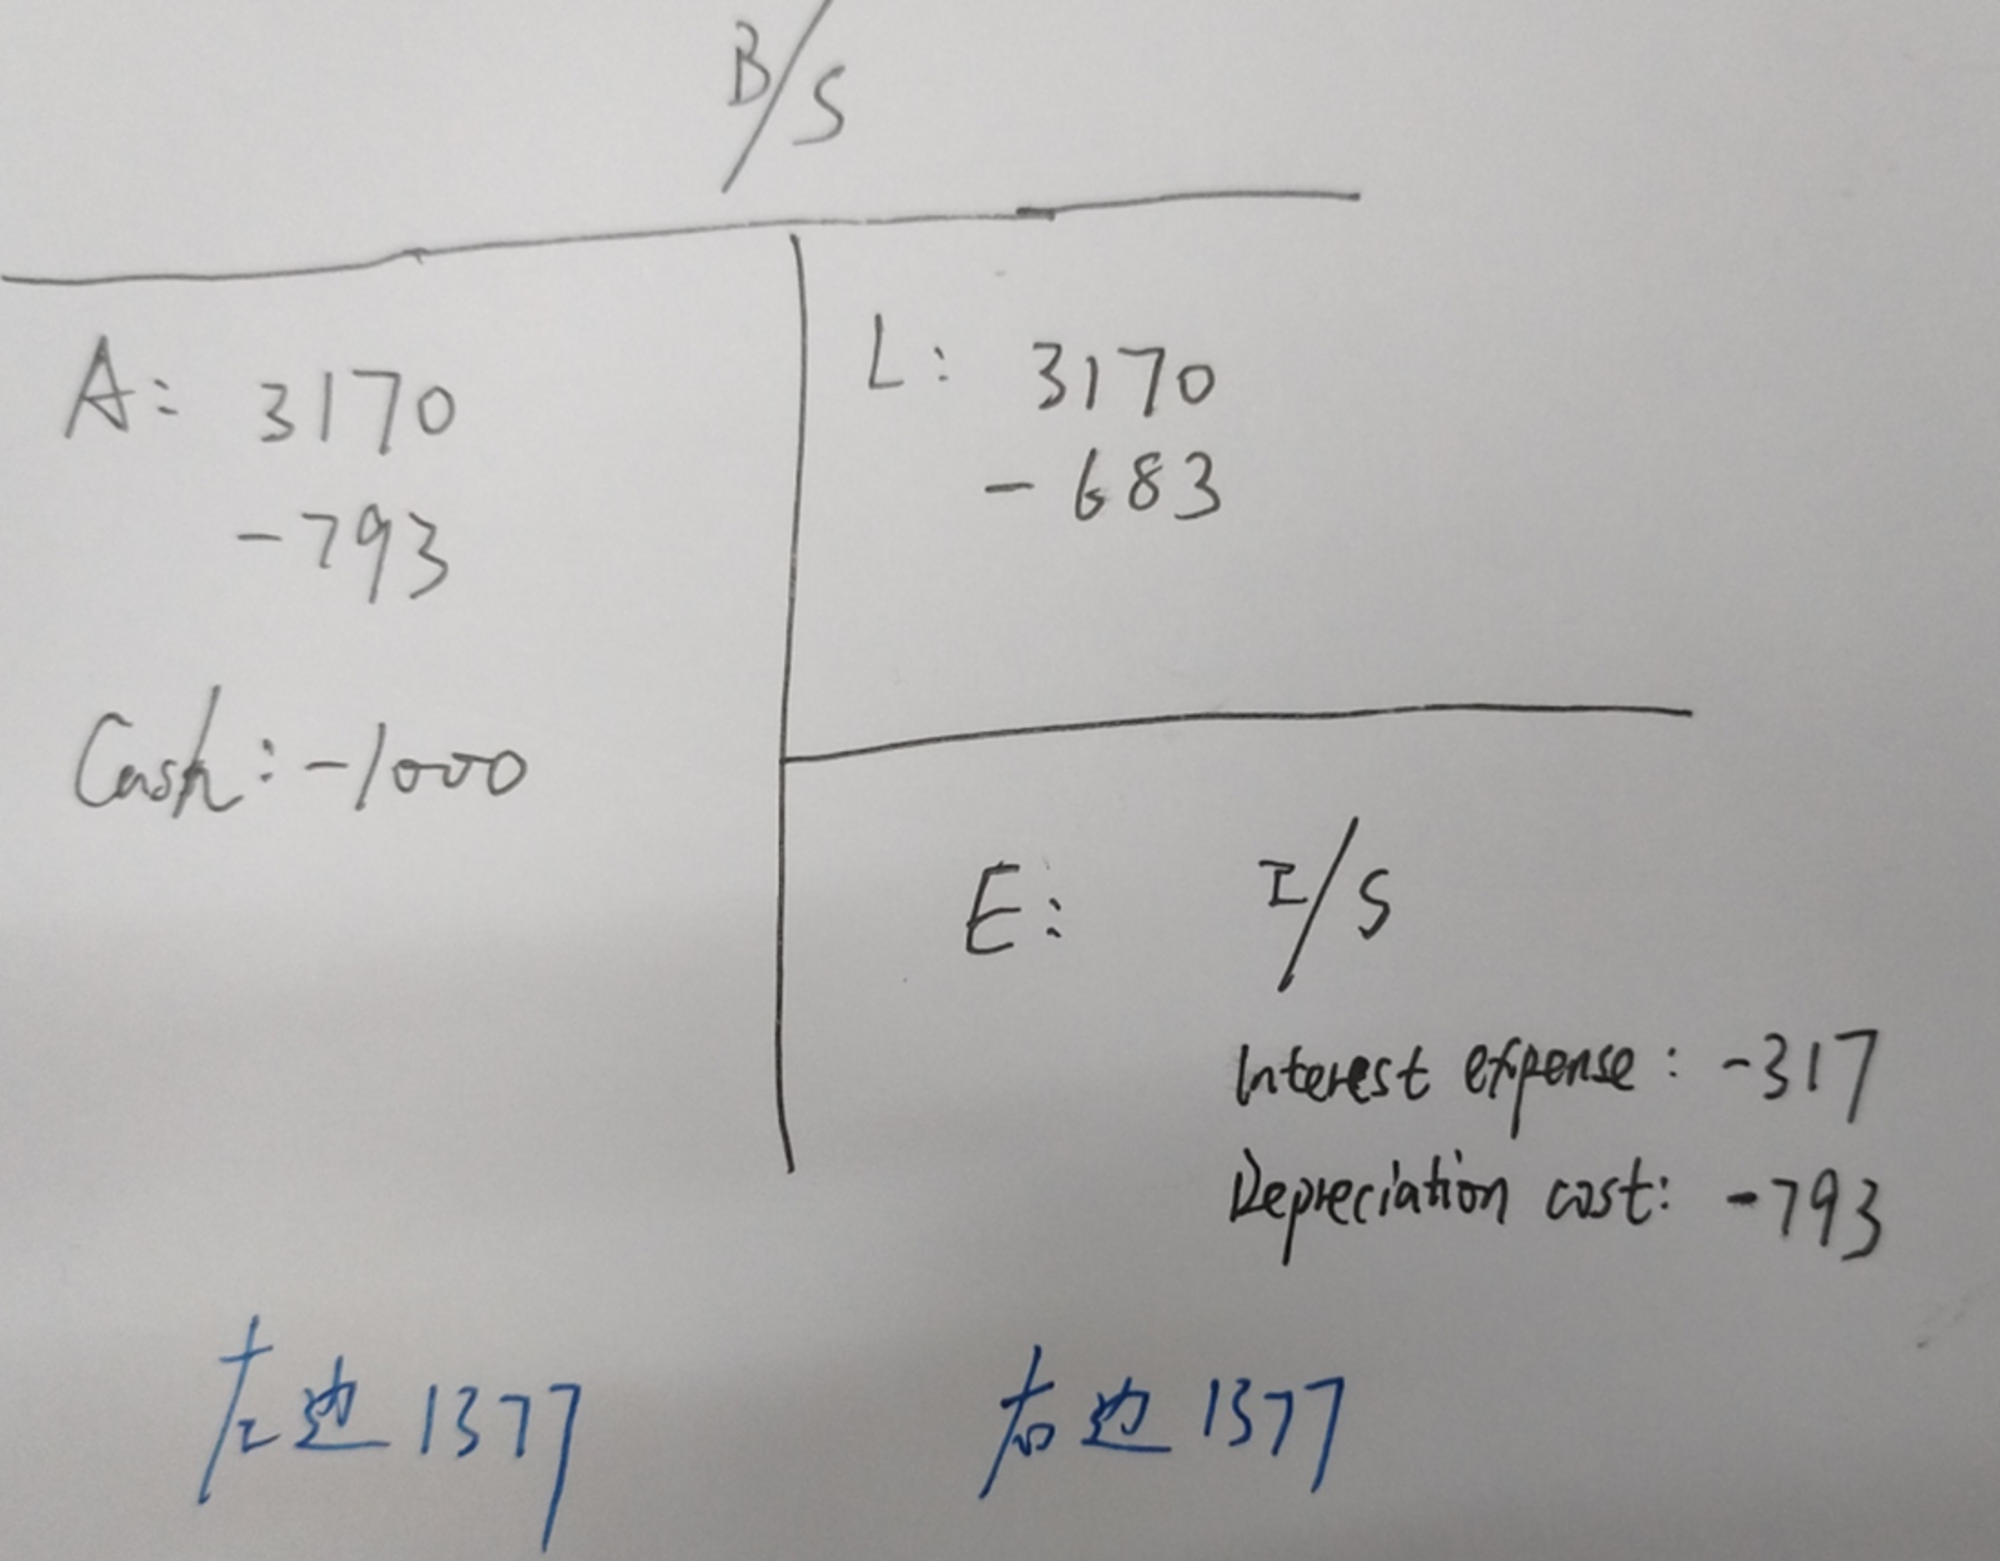 B/S
A: 3170
-793
Cash: -1000
L: 3170
- 683
E: I/S
Interest expense: -317
Depreciation cost: -793
左边 1377
右边 1377